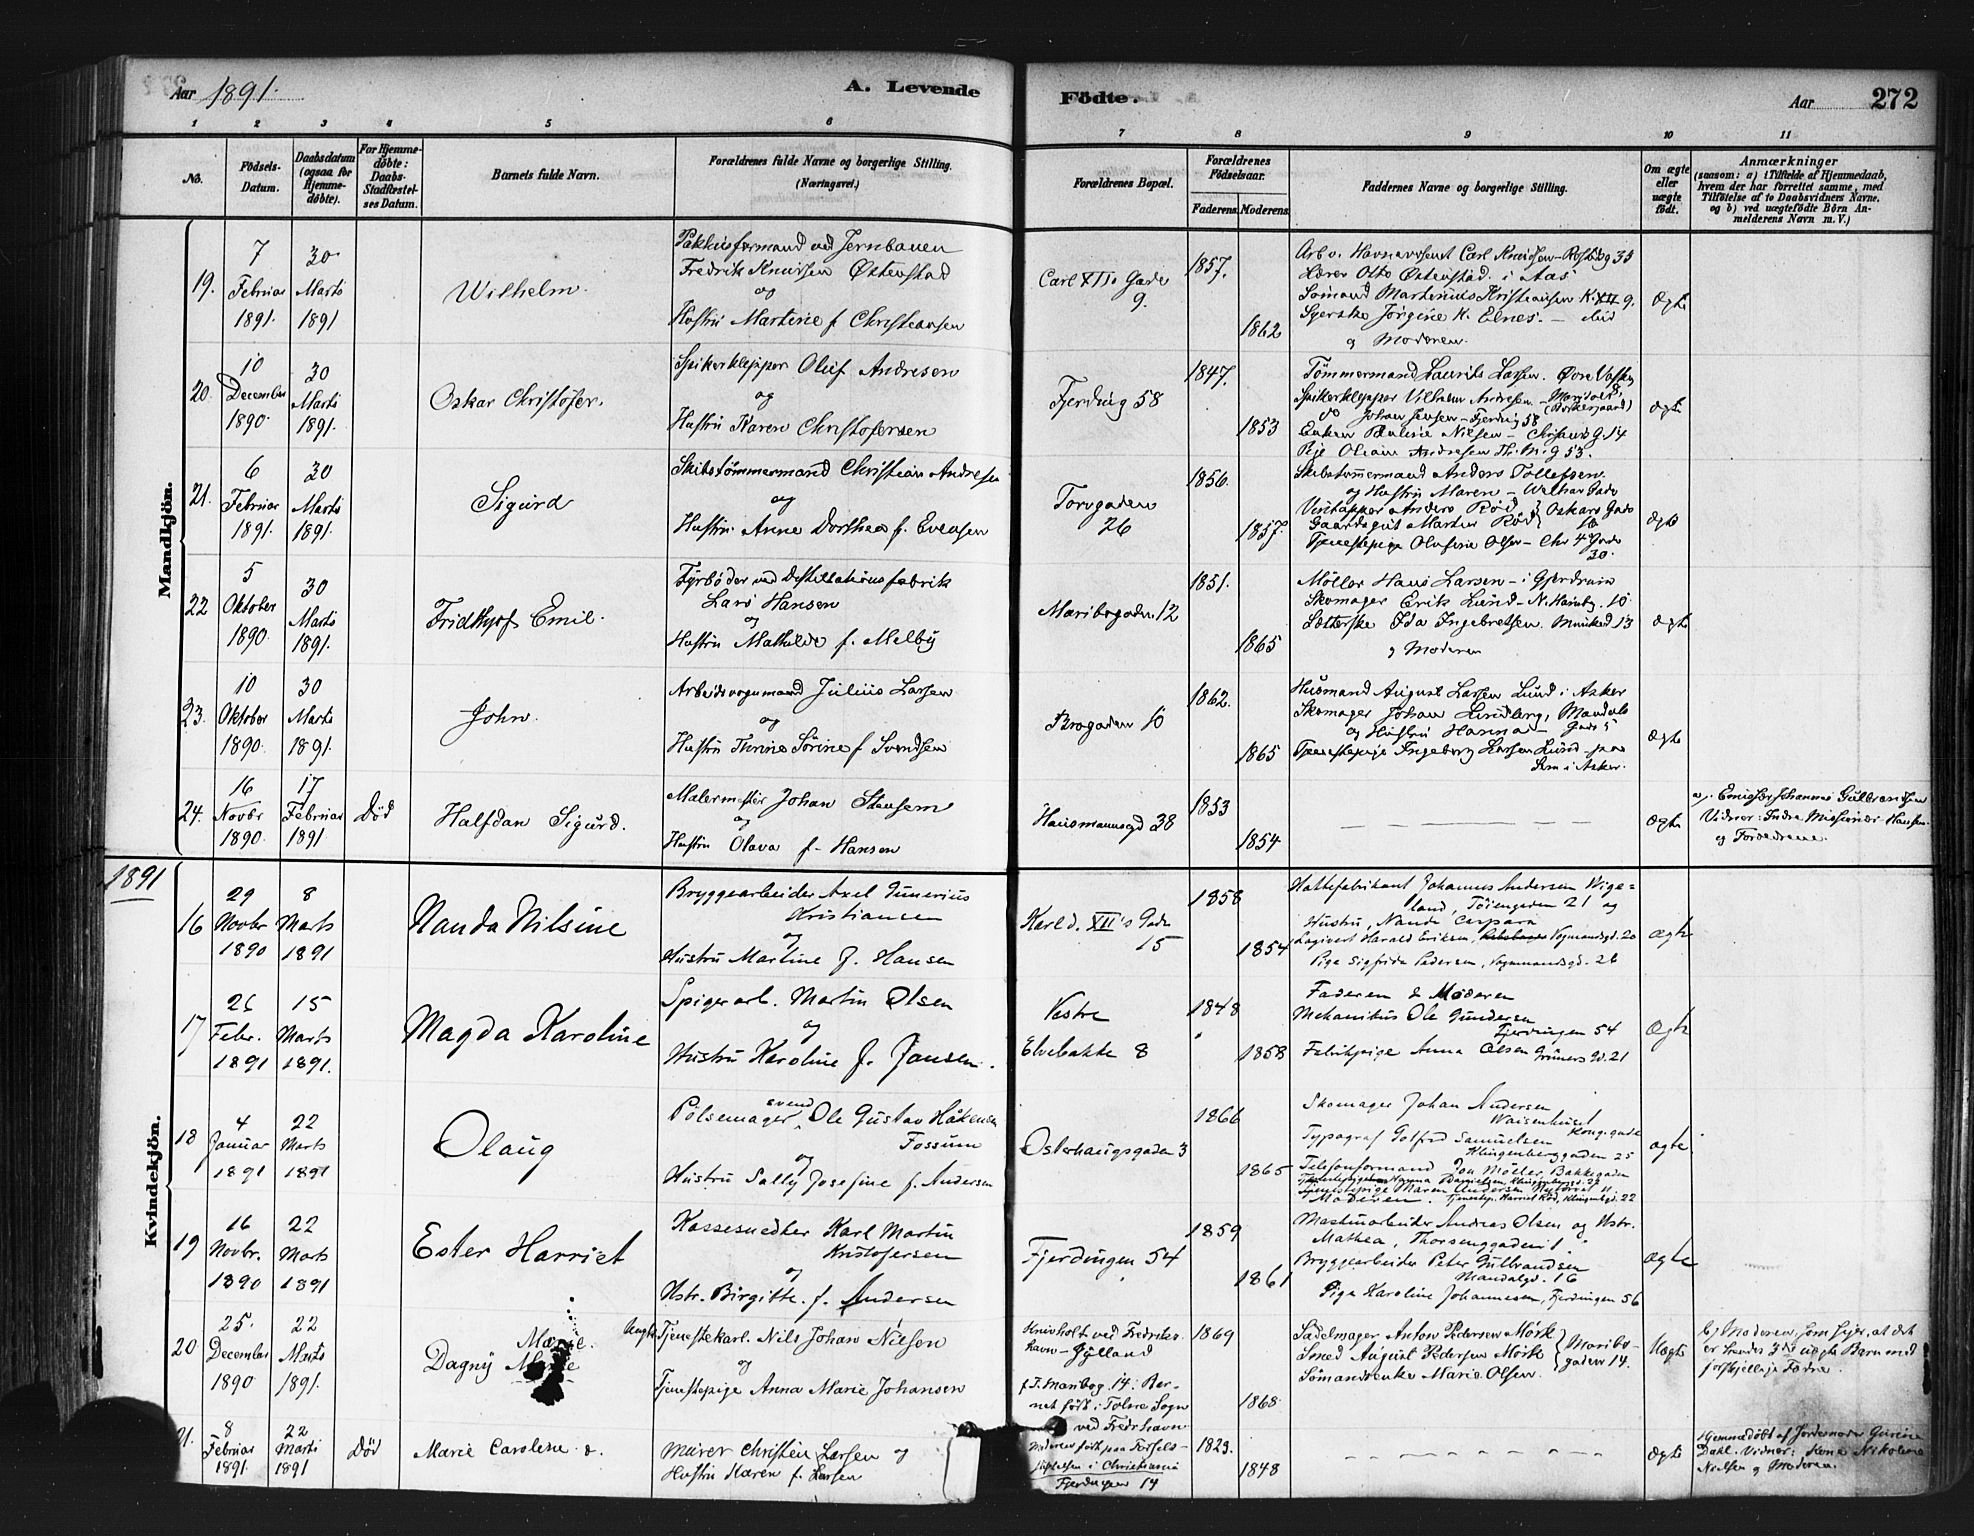 Aar 1891.
A. Levende
Födte.
Aar
272
1 2 3 4 5 6 7 8 9 10 11
No.
Födsels-Datum.
Daabsdatum (ogsaa for Hjemme-döbte).
For Hjemme-döbte: Daabs-Stadfæstel-ses Datum.
Barnets fulde Navn.
Forældrenes fulde Navne og borgerlige Stilling. (Næringsvei.)
Forældrenes Bopæl.
Forældrenes Födselsaar.
Faderens. Moderens.
Faddernes Navne og borgerlige Stilling.
Om ægte eller uægte födt.
Anmærkninger
(saasom: a) i Tilfælde af Hjemmedaab, hvem der har forrettet samme, med Tilföielse af to Daabsvidners Navne. og b) ved uægtefödte Börn An-melderens Navn m. V.)
Mandkjön.
19.
7 Februar 1891.
30 Marts 1891
Wilhelm.
Pakhusformand ved Jernbanen
Fredrik Knudsen Østenstad
og
Hustru Martine f. Christiansen
Carl XIIs Gade 9.
1857.
1862
Lærer Otto Østenstad i Aas
Sömand Martinius Kristiansen K. XII 9.
Syerske Jörgine K. Elnes. – ibid
og Moderen.
Ægte
20.
10 December 1890.
30 Marts 1891.
Oskar Christofer.
Spikerklipper Oluf Andresen
og
Hustru Karen Christofersen
Fjerding 58
1847.
1853
Tömmermand Laurits Larsen.
Spikerklipper Vilhelm Andresen
do Johan Jensen – Fjerding 58
Enken Pauline Nilsen – 14
Pige Andresen 53.
Ægte
21.
6 Februar 1891.
30 Marts 1891.
Sigurd
Skibstömmermand Christian Andresen
og
Hustru Anne Dorthea f. Evensen
Torvgaden 26
1856.
1857.
Skibstömmermand Anders Tollefsen
og Hustru Maren –
Vintapper Anders Röd
Gaardsgut Martin Röd } Oskars Gade
Tjenestepige Olufine Olsen – Chr 4 Gade 30.
Ægte
22
5 Oktober 1890.
30 Marts 1891.
Fridthjof Emil.
Fyrböder ved Destillationsfabrik
Lars Hansen
og
Hustru Mathilde f. Melby
Maribogaden 12
1851.
1865
Möller Hans Larsen – i Gjerdrum
Skomager Erik Lund – N. 10
Ida Ingebretsen. 13
og Moderen
Ægte
23.
10 Oktober 1890.
30 Marts 1891.
John.
Arbeidsvognmand Julius Larsen
og
Hustru Sörine f. Svendsen
Brogaden 10
1862.
1865
Husmand August Larsen Lund i Asker
Skomager Johan Lundberg, Mandals
og Hustru Hanna – Gade 5
Tjenestepige Ingeborg Larsen Lund – paa
Sem i Asker.
Ægte
24.
16 Novbr 1890.
17 Februar 1891.
Död
Halfdan Sigurd.
Malermester Johan Stensen
og
Hustru Olava f. Hansen
Hausmannsgd 38
1853
1854
Ægte
a). Emissær Johannes Gulbrandsen
Vidner: Indre Missionær Hansen
og Forældrene.
1891
Kvindekjön.
16
29 Novbr 1890
8 Marts 1891
Nanda Nilsine
Bryggearbeider Axel Gunerius
Kristiansen
og
Hustru Martine f. Hansen
Karl d. XII's Gade 15
1858
1854
Hattefabrikant Johannes Andersen Wige=
land, Töiengaden 21 og
Hustru, Nanda Caspara
Harald Eriksen, Vognmandsgd. 20
Pige Sigfrida Pedersen, Vognmandsgd. 26
Ægte
17
26 Febr. 1891
15 Marts 1891.
Magda Karoline
Spigerarb. Martin Olsen
og
Hustru Karoline f. Jansen.
Vestre
Elvebakke 8
1848
1858
Faderen & Moderen
Mekanikus Ole Gundersen
Fjerdingen 54
Fabrikpige Anna Olsen Grüners Gd. 21
Ægte
18
4 Januar 1891
22 Marts 1891
Olaug
Pölsemagersvend, Ole Gustav Håkensen
Fossum
og
Hustru Sally Josefine f. Andersen
Osterhausgaden 3
1866
1865
Skomager Johan Andersen
Waisenhuset
Typograf Gotfred Samuelsen Kong.gade
Klingenberggaden 25
Telefonformand Jon Möller, Bakkegaden
Tjenestepige Maren Andersen
Moderen.
ægte
19
16 Novbr. 1890
22 Marts 1891
Ester Harriet
Kassesnedker Karl Martin
Kristofersen
og
Hstr. Birgitte f. Andersen
Fjerdingen 54
1859
1861
Maskinarbeider Andreas Olsen og Hstr.
Mathea, Thorsenggaden 1.
Bryggearbeider Peter Gulbrandsen
Mandalsgd. 16
Pige Karoline Johannesen, Fjerdingen 56
Ægte
20
25. December 1890
22 Marts 1891.
Dagny Marie
Marie.
Ungk. Tjenestekarl. Nils Johan Nilsen
og
Tjenestepige Anna Marie Johansen
Knivholt ved Fredriks-
havn – Jylland
f. T. Maribog. 14: Bar-
net födt i Tolne Sogn
ved Fredrhavn
Moderen födt paa Födsels-
stiftelsen i Christiania
1869
1868
Sadelmager Anton Pedersen Mörk
Smed August Pedersen Mörk } Maribo-gaden 14.
Sömandsenke Marie Olsen.
Uægte
b) Moderen, som siger, at det
er hendes 3die uægte Barn med
forskjellige Fædre.
21.
8 Februar 1891.
22 Marts 1891
Död
Marie Caroline
Murer Christian Larsen og
Hustru Karen f. Larsen
Fjerdingen 14
1823.
1848
Ægte
Hjemmedöbt af Jordemoder Gurine
Dahl. Vidner: Nikoline
Nielsen og Moderen.